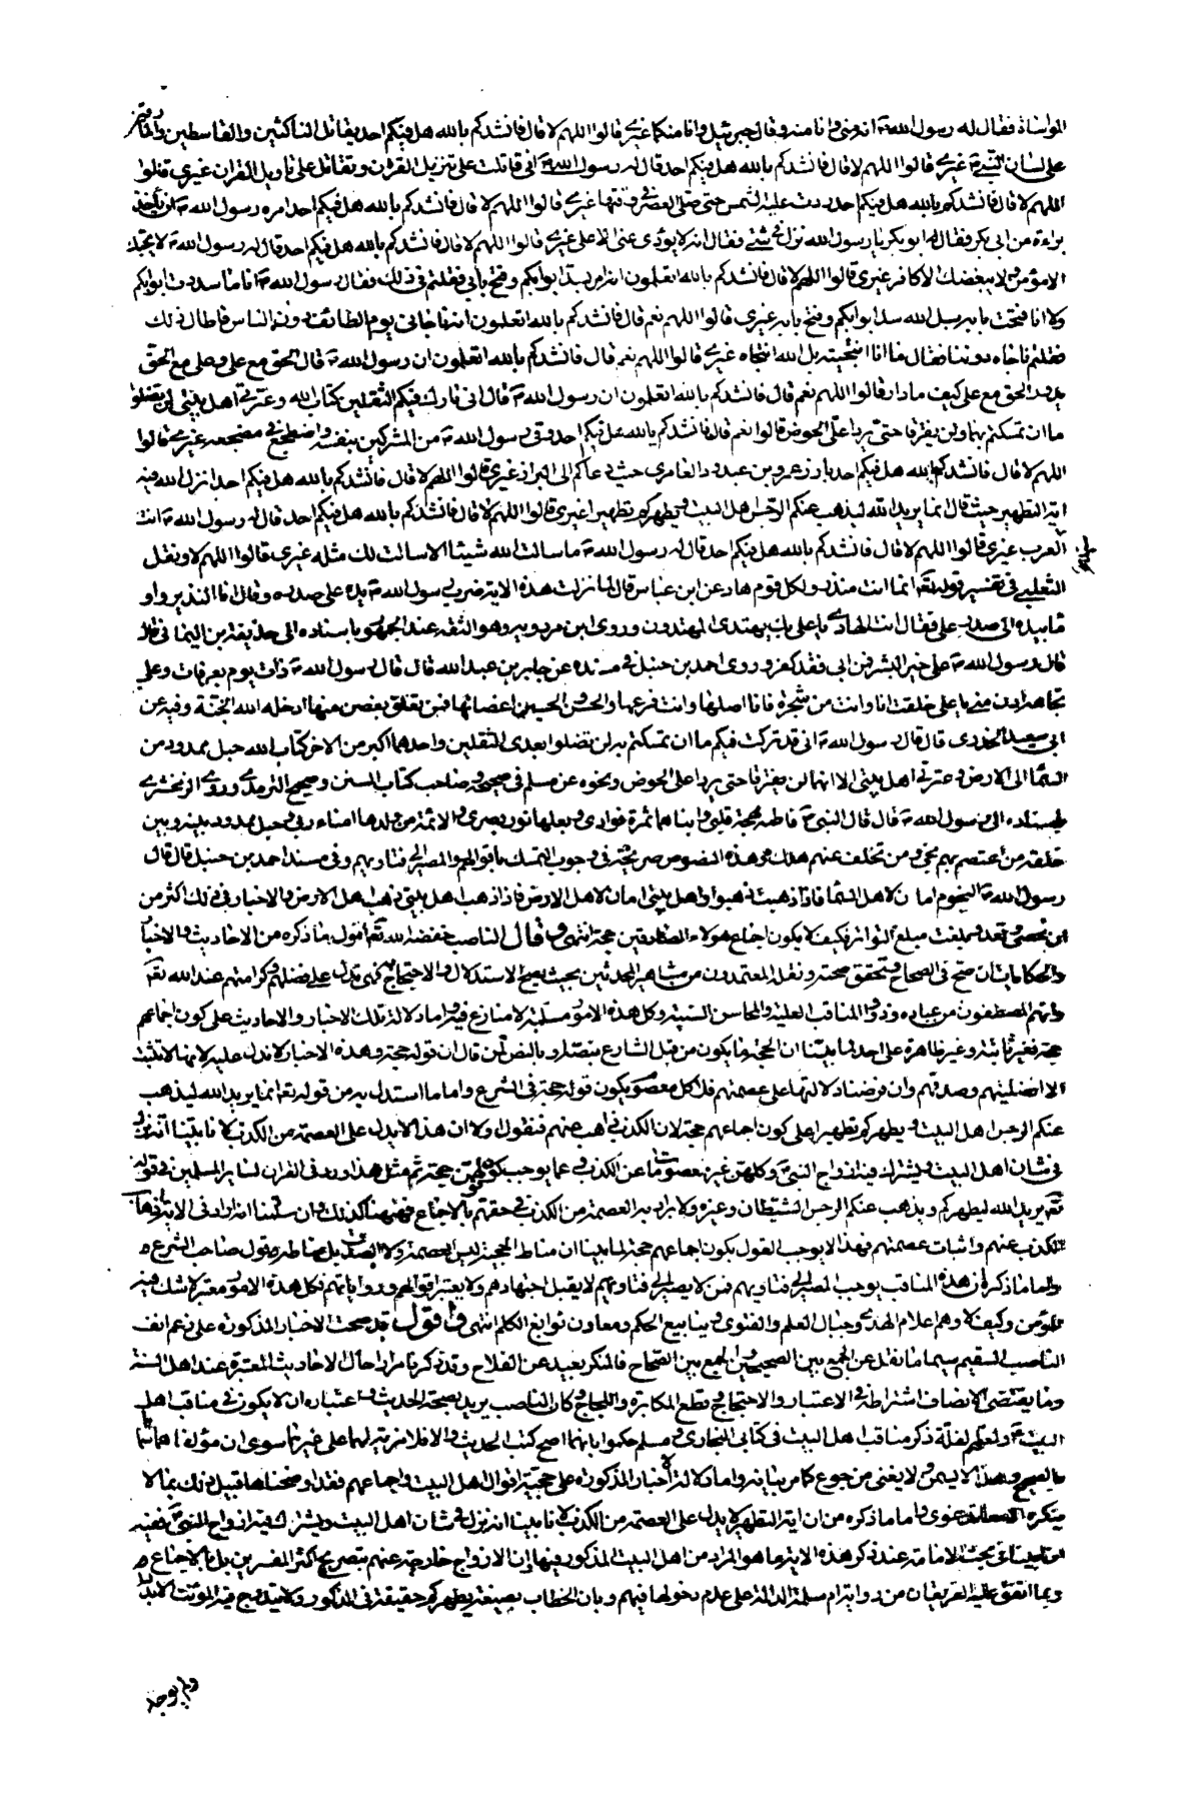 المواساة فقال له رسول الله ص انه مني وانا منه وقال جبرئيل وانا منكما غيري قالوا اللهم لا قال فانشدكم بالله هل فيكم احد يقاتل الناكثين والقاسطين والمارقين
على لسان النبي ص غيري قالوا اللهم لا قال فانشدكم بالله هل فيكم احد قال له رسول الله ص اني قاتلت على تنزيل القران وتقاتل على تاويل القران غيري قالوا
اللهم لا قال فانشدكم بالله هل فيكم احد ردت عليه الشمس حتى صلى العصر في وقتها غيري قالوا اللهم لا قال فانشدكم بالله هل فيكم احد امره رسول الله ص ان ياخذ
براءة من ابي بكر فقال له ابو بكر يا رسول الله نزل في شئ فقال انه لا يؤدي عني الا علي غيري قالوا اللهم لا قال فانشدكم بالله هل فيكم احد قال له رسول الله ص لا يحبك
الا مؤمن ولا يبغضك الا كافر غيري قالوا اللهم لا قال فانشدكم بالله اتعلمون انه امر بسد ابوابكم وفتح بابي فقلتم في ذلك فقال رسول الله ص انا ما سددت ابوابكم
ولا انا فتحت بابه بل الله سد ابوابكم وفتح بابه غيري قالوا اللهم نعم قال فانشدكم بالله اتعلمون انه ناجاني يوم الطائف دون الناس فاطال ذلك
فقلتم ناجاه دوننا فقال ما انا انتجيته بل الله انتجاه غيري قالوا اللهم نعم قال فانشدكم بالله اتعلمون ان رسول الله ص قال الحق مع علي وعلي مع الحق
يدور الحق مع علي كيف ما دار قالوا اللهم نعم قال فانشدكم بالله اتعلمون ان رسول الله ص قال اني تارك فيكم الثقلين كتاب الله وعترتي اهل بيتي لن تضلوا
ما ان تمسكتم بهما ولن يفترقا حتى يردا علي الحوض قالوا نعم قال فانشدكم بالله هل فيكم احد وقى رسول الله ص من المشركين بنفسه واضطجع في مضجعه غيري قالوا
اللهم لا قال فانشدكم بالله هل فيكم احد بارز عمرو بن عبد ود العامري حيث دعاكم الى البراز غيري قالوا اللهم لا قال فانشدكم بالله هل فيكم احد انزل الله فيه
اية التطهير حيث قال انما يريد الله ليذهب عنكم الرجس اهل البيت ويطهركم تطهيرا غيري قالوا اللهم لا قال فانشدكم بالله هل فيكم احد قال له رسول الله ص انت
سيد
العرب غيري قالوا اللهم لا قال فانشدكم بالله هل فيكم احد قال له رسول الله ص ما سالت الله شيئا الا سالت لك مثله غيري قالوا اللهم لا ونقل
الثعلبي في تفسير قوله تعالى انما انت منذر ولكل قوم هاد عن ابن عباس قال لما نزلت هذه الاية ضرب رسول الله ص يده على صدره وقال انا النذير واو
ما بيده الى صدر علي فقال انت الهادي يا علي بك يهتدي المهتدون وروى ابن مردويه وهو الثقة عند الجمهور باسناده الى حذيفة بن اليمان قال
قال رسول الله ص علي خير البشر فمن ابى فقد كفر وروى احمد بن حنبل في مسنده عن جابر بن عبد الله قال قال رسول الله ص ذات يوم بعرفات وعلي
تجاهه ادن مني يا علي خلقت انا وانت من شجرة فانا اصلها وانت فرعها والحسن والحسين اغصانها فمن تعلق بغصن منها ادخله الله الجنة وفيه عن
ابي سعيد الخدري قال قال رسول الله ص اني قد تركت فيكم ما ان تمسكتم به لن تضلوا بعدي الثقلين واحدهما اكبر من الاخر كتاب الله حبل ممدود من
السماء الى الارض وعترتي اهل بيتي الا انهما لن يفترقا حتى يردا علي الحوض ونحوه عن مسلم في صحيحه وصاحب كتاب السنن وصحيح الترمذي وروى الزمخشري
باسناده الى رسول الله ص قال قال النبي ص فاطمة مهجة قلبي وابناها ثمرة فؤادي وبعلها نور بصري والائمة من ولدها امناء ربي وحبل ممدود بينه وبين
خلقه من اعتصم بهم نجى ومن تخلف عنهم هلك وهذه النصوص صريحة في وجوب التمسك باقوالهم والمصير الى فتاويهم وفي مسند احمد بن حنبل قال قال
رسول الله ص النجوم امان لاهل السماء فاذا ذهبت ذهبوا واهل بيتي امان لاهل الارض فاذا ذهب اهل بيتي ذهب اهل الارض والاخبار في ذلك اكثر من
ان تحصى وتعد وبلغت مبلغ التواتر فكيف لا يكون اجماع هؤلاء الصادقين حجة انتهى وقال الناصب خفضه الله تعالى اقول ما ذكره من الاحاديث والاخبار
والحكايات ان صح في الصحاح وتحقق صحته ونقل المعتمدون من مشاهير المحدثين بحيث يصح الاستدلال والاحتجاج فهي تدل على فضلهم وكرامتهم عند الله تعالى
وانهم المصطفون من عباده وذوو المناقب العلية والمحاسن السنية وكل هذه الامور مسلمة لا منازع فيه واما دلالة تلك الاخبار والاحاديث على كون اجماعهم
حجة فغير ثابتة وغير ظاهرة على احد لما بينا ان الحجة ما يكون من قبل الشارع بتصلد وبالنص لمن قال ان قوله حجة وهذه الاخبار لا تدل عليه لانها لا تثبت
الا افضليتهم وصدقهم وان فرضنا دلالتها على عصمتهم فلا كل معصوم يكون قوله حجة في الشرع واما ما استدل به من قوله تعالى انما يريد الله ليذهب
عنكم الرجس اهل البيت ويطهركم تطهيرا على كون اجماعهم حجة لان الكذب ذاهب عنهم فنقول اولا ان هذا لا يدل على العصمة من الكذب لانا بينا انه نزل
في شان اهل البيت ويشترك فيه ازواج النبي ص وكلهن غير معصومات عن الكذب فما يوجب كون قولهن حجة ثم مثل هذا ورد في القران لسائر المسلمين في قوله
تعالى يريد الله ليطهركم ويذهب عنكم الرجس الشيطان وغيره ولا يراد به العصمة من الكذب في حقهم بالاجماع فههنا كذلك وان سلمنا انه اراد في الاية اذهاب
الكذب عنهم واثبات عصمتهم فهذا لا يوجب القول بكون اجماعهم حجة لما بينا ان مناط الحجية ليس العصمة ولا الصدق بل مناطه قول صاحب الشرع
واما ما ذكر ان هذه المناقب يوجب المصير الى فتاويهم فمن لا يصير الى فتاويهم لا يقبل اجتهادهم ولا يعتبر اقوالهم ورواياتهم فكل هذه الامور معتبرة لا شك فيه
لمؤمن وكيف لا وهم اعلام الهدى وجبال العلم والفتوى وينابيع الحكم ومعادن نوابغ الكلم انتهى واقول قد صحت الاخبار المذكورة على زعم انف
الناصب السقيم سيما ما نقل عن الجمع بين الصحيحين والجمع بين الصحاح فالمنكر بعيد عن الفلاح وقد ذكرنا مرارا حال الاحاديث المعتبرة عند اهل السنة
وما يقتضي الانصاف اشتراطه في الاعتبار والاحتجاج وقطع المكابرة واللجاج وكان الناصب يريد بصحة الحديث واعتباره ان لا يكون في مناقب اهل
البيت ع ولعلهم لقلة ذكر مناقب اهل البيت في كتابي البخاري ومسلم حكموا بانهما اصح كتب الحديث والا فلا مزية لهما على غيرهما سوى ان مؤلفاهما سما
بالصحيح وهذا لا يسمن ولا يغني من جوع كما مر بيانه واما دلالة الاخبار المذكورة على حجية اقوال اهل البيت واجماعهم فقد اوضحناها قبيل ذلك بما لا
ينكره دعوى واما ما ذكره من ان اية التطهير لا يدل على العصمة من الكذب لانا بينا انه نزل في شان اهل البيت ويشترك فيه ازواج النبي ص ففيه
انا بينا في بحث الامامة عند ذكر هذه الاية ما هو المراد من اهل البيت المذكور فيها وان الازواج خارجة عنهم بتصريح اكثر المفسرين بل بالاجماع
وبما اتفق عليه الفريقان من رواية ام سلمة الدالة على عدم دخولها فيهم وبان الخطاب بصيغة يطهركم حقيقة في الذكور ولا يندرج فيه المؤنث الا بتاويل
ولم يوجد